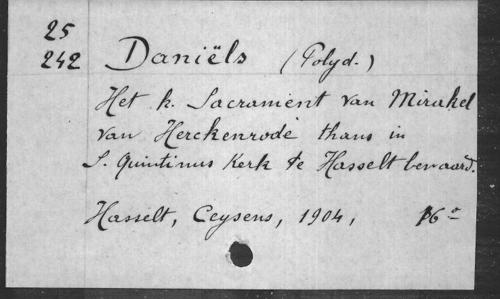 25
242
Daniëls (Polyd.)
Het h. Sacrament van Mirakel
van Herckenrode thans in
S. Quintinus Kerk te Hasselt bewaard.
Hasselt, Ceysens, 1904, 16°